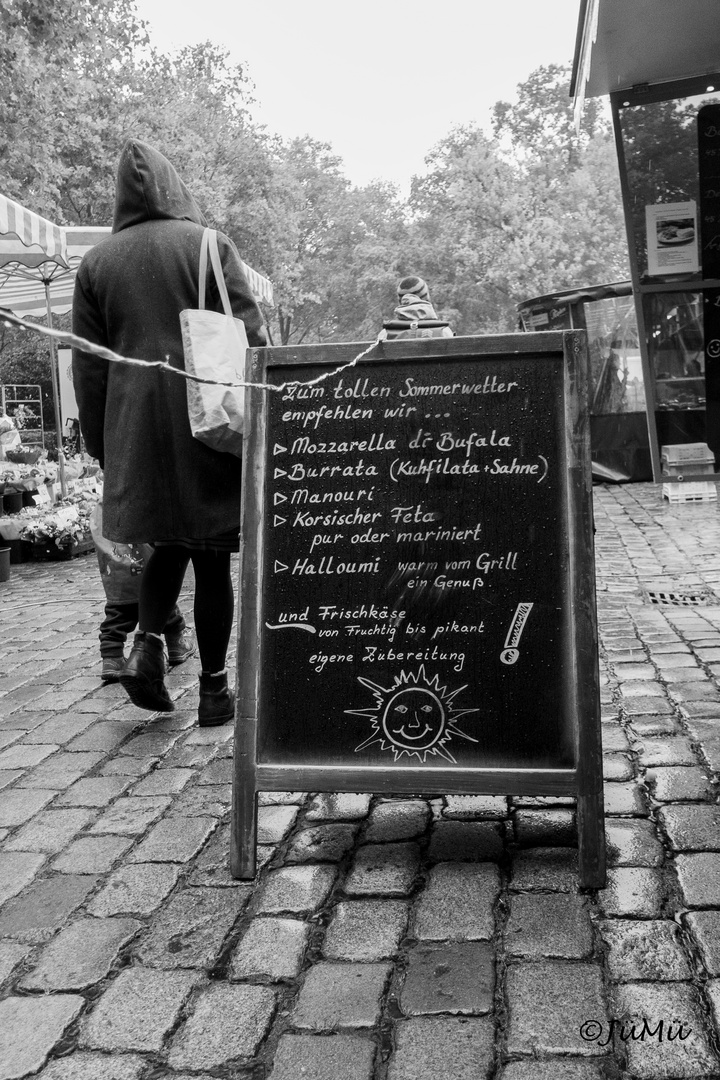 Zum tollen Sommerwetter
empfehlen wir ...
▷ Mozzarella di Bufala
▷ Burrata (Kuhfilata + Sahne)
▷ Manouri
▷ Korsischer Feta
pur oder mariniert
▷ Halloumi warm vom Grill
ein Genuß.
und Frischkäse
von Fruchtig bis pikant
eigene Zubereitung
©JüMü